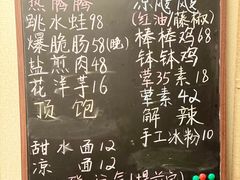 热腾腾
跳水蛙98
爆脆肠58(晚)
盐煎肉48
花洋芋16
顶饱
甜水面12
凉面12
凉飕飕
(红油/藤椒)
棒棒鸡68
钵钵鸡
荤35素18
荤素42
解辣
手工冰粉10